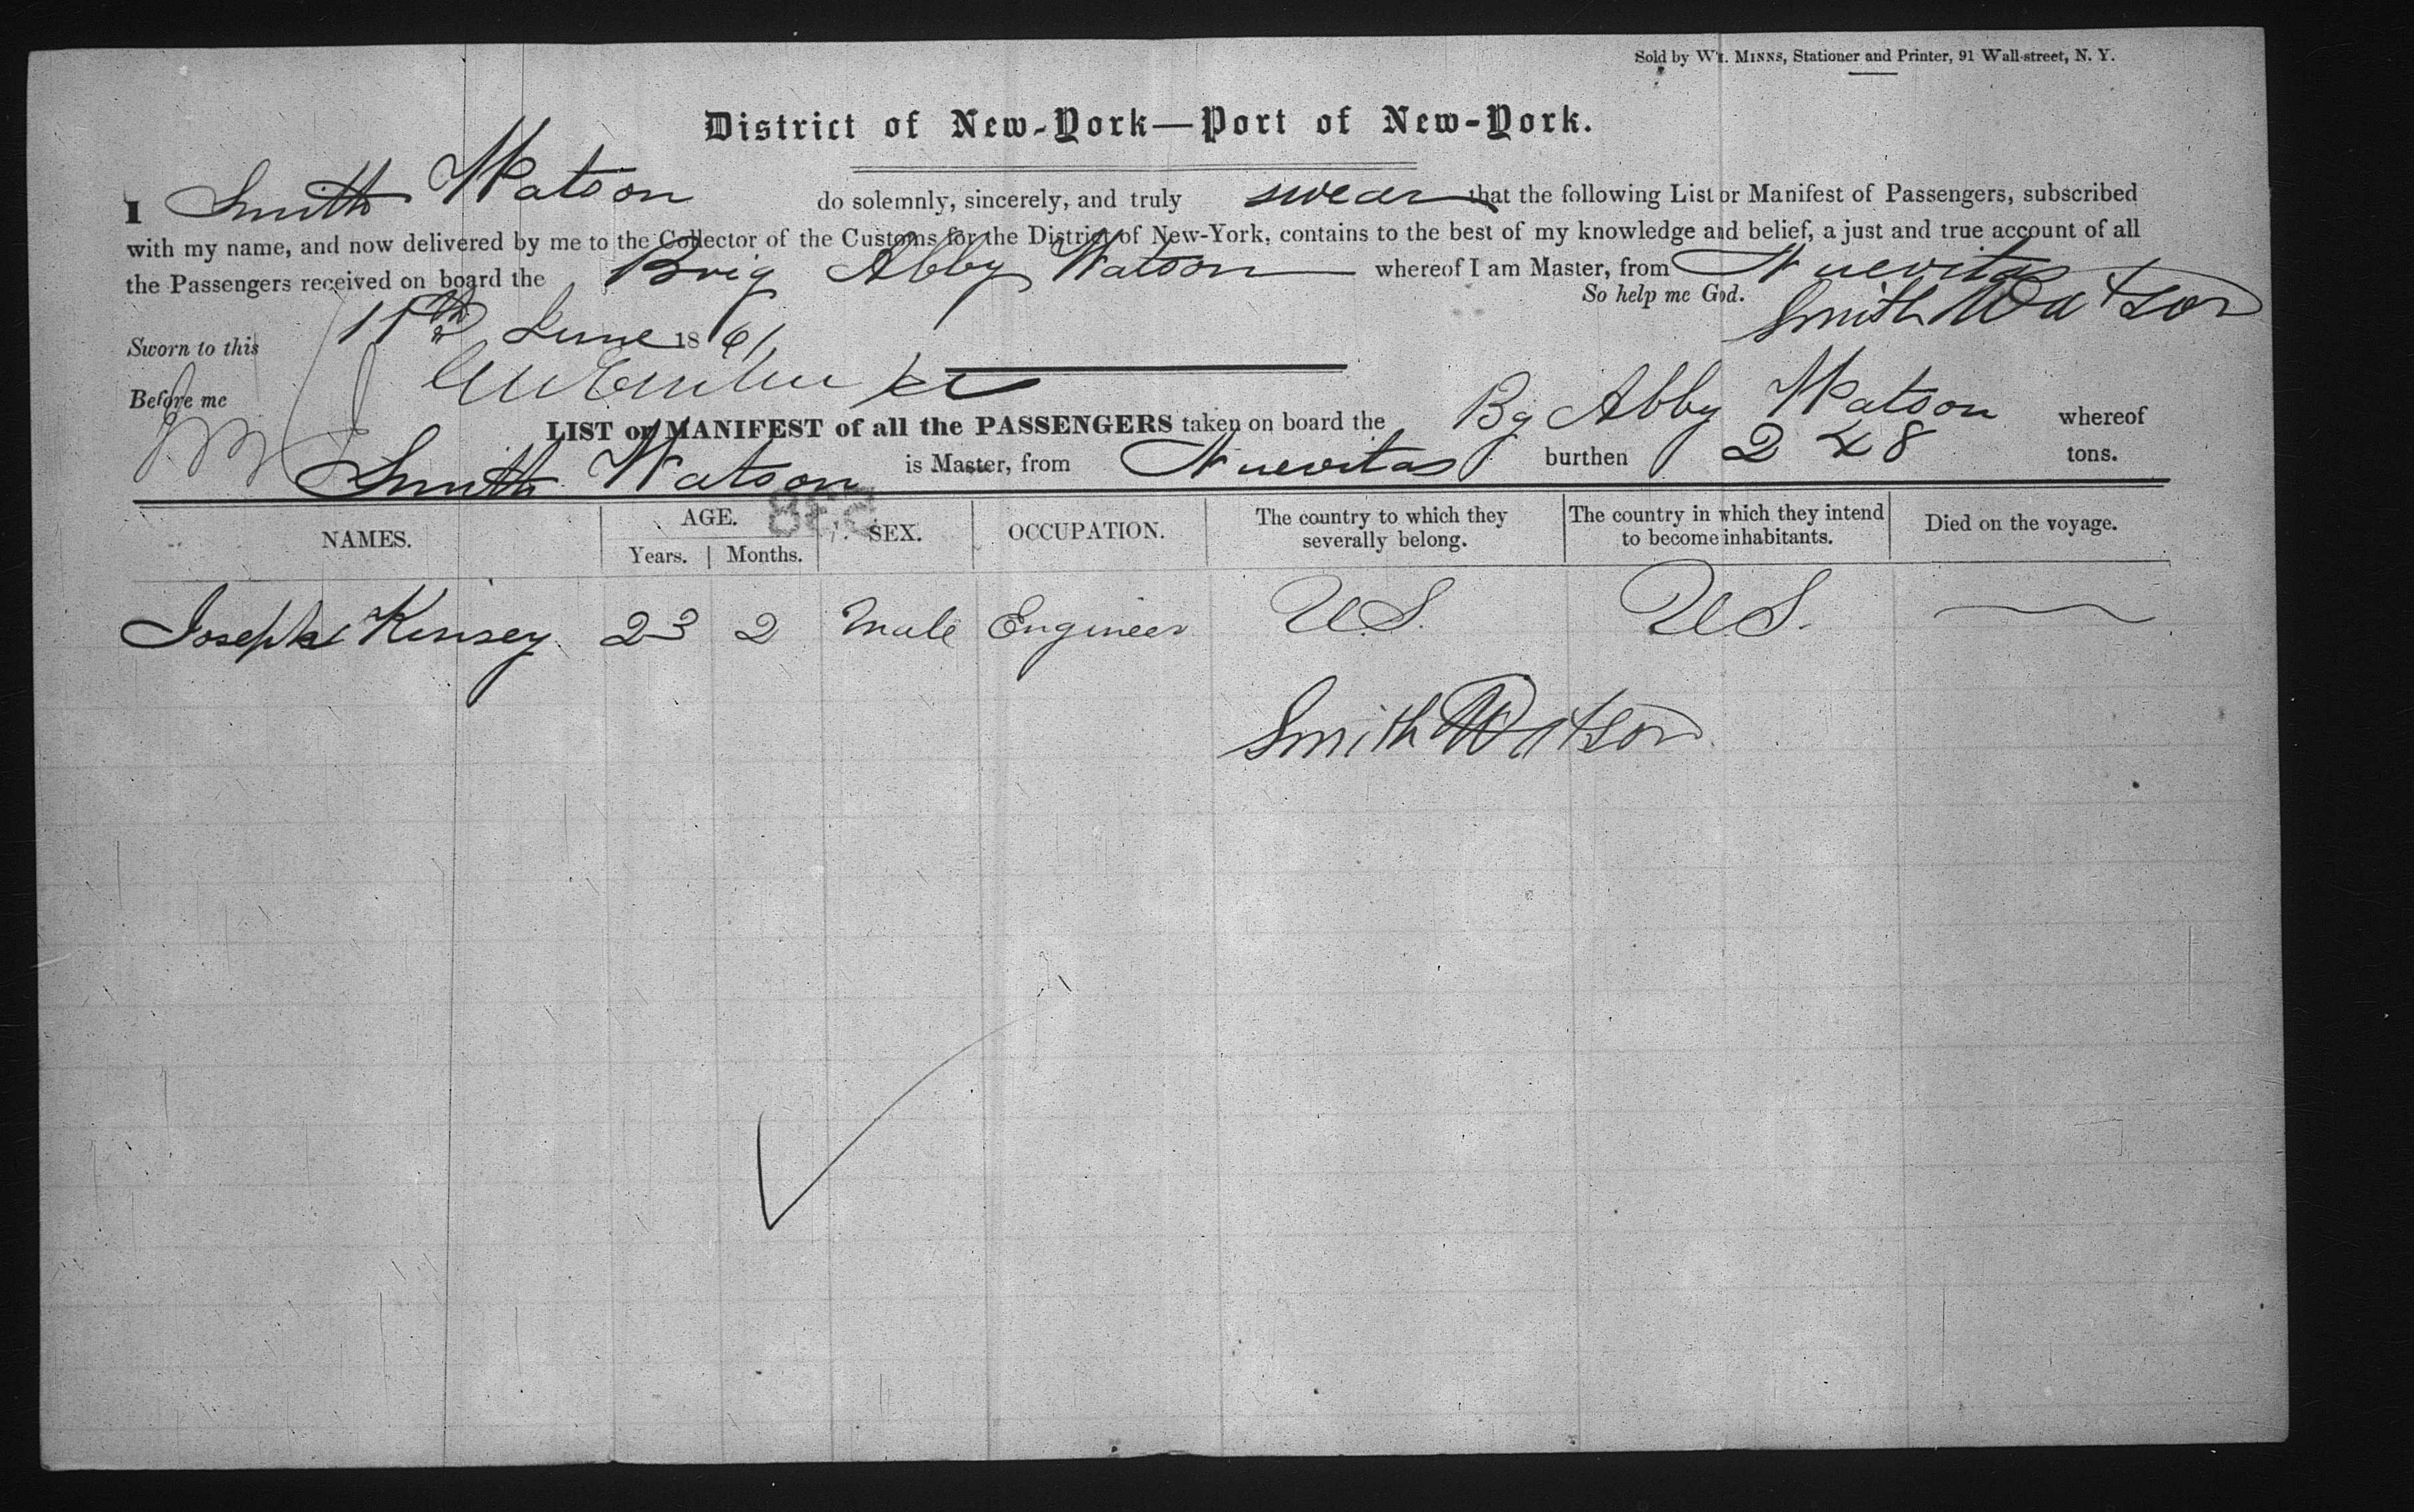 Sold by WM. MINNS, Stationer and Printer, 91 Wall-street, N. Y.
District of New-York—Port of New-York.
I Smith Watson do solemnly, sincerely, and truly swear that the following List or Manifest of Passengers, subscribed
with my name, and now delivered by me to the Collector of the Customs for the District of New-York, contains to the best of my knowledge and belief, a just and true account of all
the Passengers received on board the Brig Abby Watson whereof I am Master, from Nuevitas
So help me God. Smith Watson
Sworn to this June 1861
Before me
LIST or MANIFEST of all the PASSENGERS taken on board the Bg Abby Watson whereof
Smith Watson is Master, from Nuevitas burthen 248 tons.
NAMES. AGE. Years. Months. SEX. OCCUPATION. The country to which they severally belong. The country in which they intend to become inhabitants. Died on the voyage.
Joseph Kinsey 23 2 Male Engineer U.S. U.S.
Smith Watson